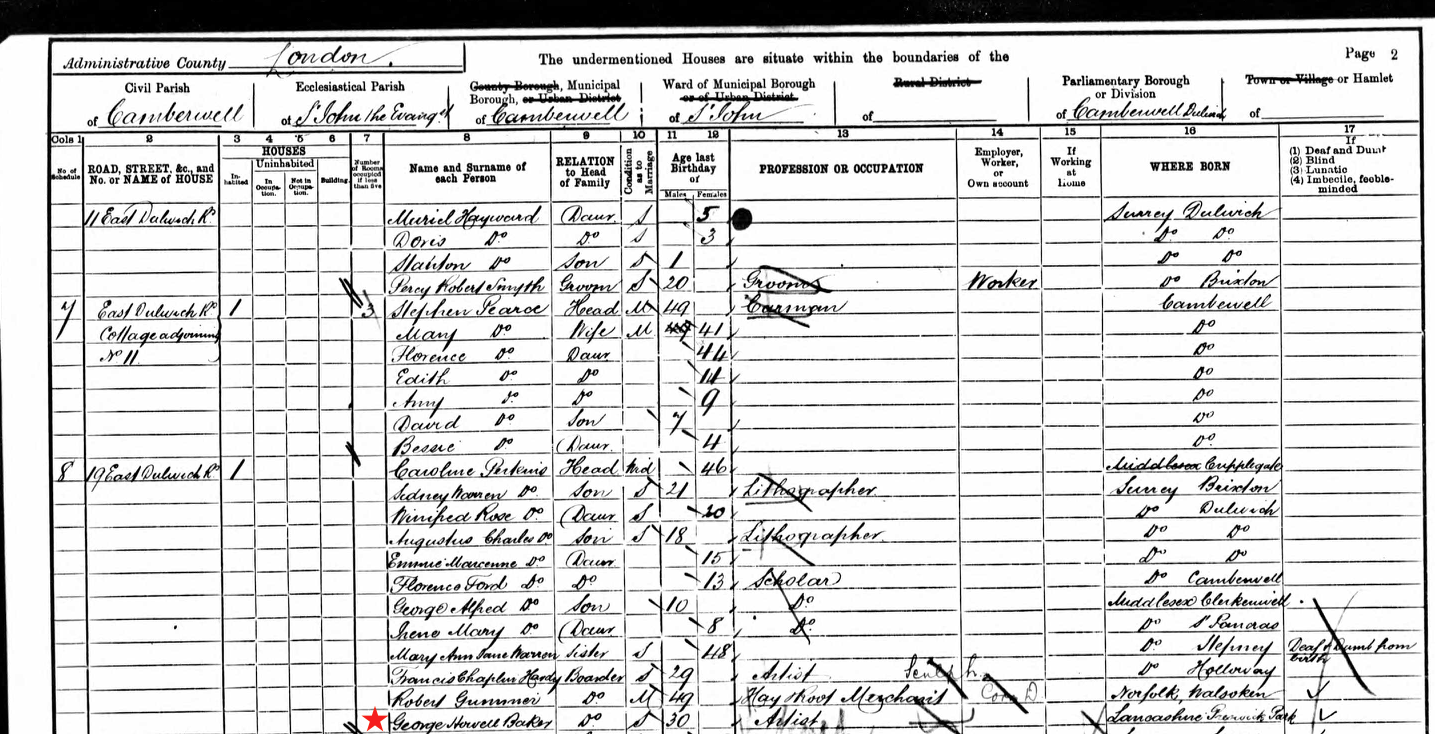 Administrative County London. The undermentioned Houses are situate within the boundaries of the Page 2
Civil Parish Ecclesiastical Parish County Borough, Municipal Ward of Municipal Borough Rural District Parliamentary Borough Town or Village or Hamlet
Borough, or Urban District or of Urban District or Division
of Camberwell of St John the Evang. of Camberwell of St John of of Camberwell Dulwich of
Cols 1 2 3 4 5 6 7 8 9 10 11 12 13 14 15 16 17
No. of Schedule ROAD, STREET, &c., and No. or NAME of HOUSE HOUSES Inhabited Uninhabited In Occupation. Not in Occupation. Building. Number of Rooms occupied if less than five Name and Surname of each Person RELATION to Head of Family Condition as to Marriage Age last Birthday of Males Females PROFESSION OR OCCUPATION Employer, Worker, or Own account If Working at Home WHERE BORN If (1) Deaf and Dumb (2) Blind (3) Lunatic (4) Imbecile, feeble-minded
11 East Dulwich Rd Muriel Hayward Daur S 5 Surrey Dulwich
Doris Do Do S 3 Do Do
Do Son S 1 Do Do
Percy Robert Smyth Groom S 20 Groom Worker Do Brixton
7 East Dulwich Rd 1 3 Stephen Pearce Head M 49 Carman Camberwell
Cottage adjoining Mary Do Wife M 41 Do
No 11 Florence Do Daur Do
Edith Do Do 14 Do
Amy Do Do 9 Do
David Do Son 7 Do
Bessie Do Daur 4 Do
8 19 East Dulwich Rd 1 Caroline Perkins Head Wid 46 Middlesex Cripplegate
Sidney Warren Do Son S 21 Lithographer Surrey Brixton
Winifred Rose Do Daur S 20 Do Dulwich
Augustus Charles Do Son S 18 Lithographer Do Do
Emmie Do Daur 15 Do Do
Florence Ford Do Do 13 Scholar Do Camberwell
George Alfred Do Son 10 Do Middlesex Clerkenwell
Irene Mary Do Daur 8 Do Do St Pancras
Mary Ann Jane Warren Sister S 48 Do Stepney Deaf & Dumb from birth
Francis Chaplin Hardy Boarder S 29 Artist Sculp Do Holloway
Robert Gummer Do M 49 Hay Merchant Norfolk, Walsoken
George Howell Baker Do S 30 Artist Lancashire Park